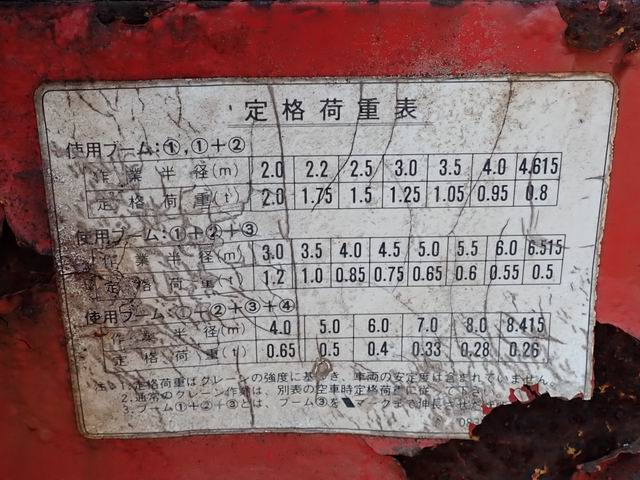 定格荷重表
使用ブーム:①,①+②
作業半径(m) 2.0 2.2 2.5 3.0 3.5 4.0 4.615
定格荷重(t) 2.0 1.75 1.5 1.25 1.05 0.95 0.8
使用ブーム:①+②+③
作業半径(m) 3.0 3.5 4.0 4.5 5.0 5.5 6.0 6.515
定格荷重(t) 1.2 1.0 0.85 0.75 0.65 0.6 0.55 0.5
使用ブーム:①+②+③+④
作業半径(m) 4.0 5.0 6.0 7.0 8.0 8.415
定格荷重(t) 0.65 0.5 0.4 0.33 0.28 0.26
注 1.定格荷重はクレーンの強度に基づき、車両の安定度は含まれていません。
2.通常のクレーン作業は、別表の空車時定格荷重に従
3.ブーム①+②+③とは、ブーム③を マークまで伸長させた